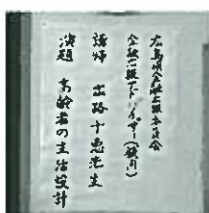 広島県金融広報委員会
金融広報アドバイザー(講師)
講師 出路千恵先生
演題 高齢者の生活設計